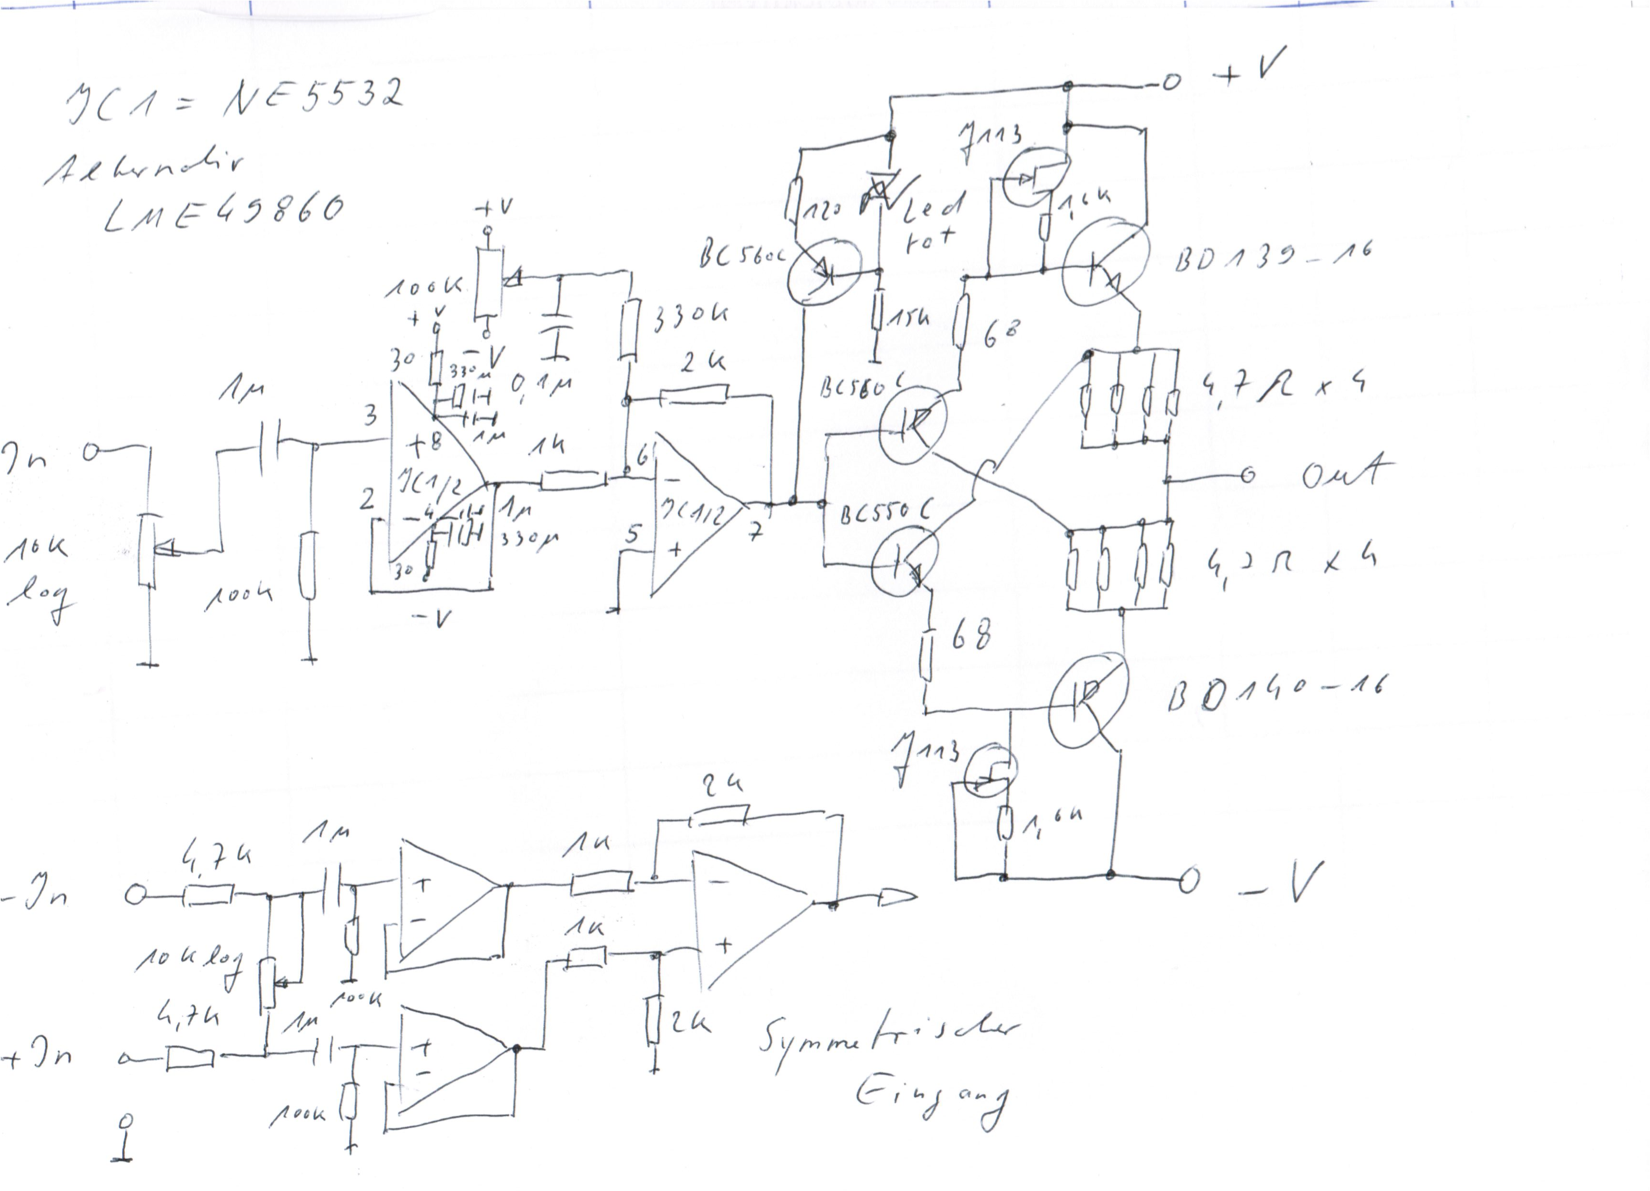 IC1 = NE5532
Alternativ
LME49860
+V
+V
J113
120
Led
rot
1,6K
BC560C
BD139-16
100K
+V
-V
330K
15K
68
30
330µ
0,1µ
2K
1µ
3
+8
1µ
1K
6
BC560C
4,7Ω x 4
In
IC1/2
2
-4
1µ
330µ
5
IC1/2
7
Out
BC550C
10K
log
100K
30
-V
4,7Ω x 4
68
BD140-16
J113
1,6K
-V
-In
4,7K
1µ
1K
2K
10K log
100K
1K
4,7K
1µ
2K
+In
100K
Symmetrischer
Eingang